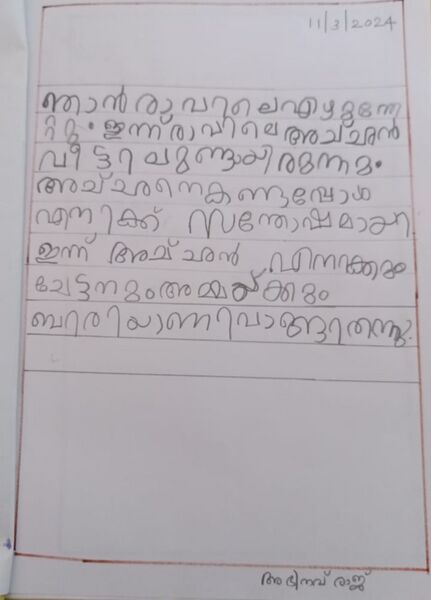 11/3/2024
ഞാൻ രാവിലെഎഴുന്നേ
റ്റു. ഇന്ന് രാവിലെ അച്ചൻ
വീട്ടിലുണ്ടായിരുന്നു.
അച്ചനെകണ്ടപ്പോൾ
എനിക്ക് സന്തോഷമായി
ഇന്ന് അച്ചൻ എനക്കും
ചേട്ടനുംഅമ്മയ്ക്കും
ബിരിയാണിവാങ്ങിതന്നു.
അഭിനവ് രാജ്